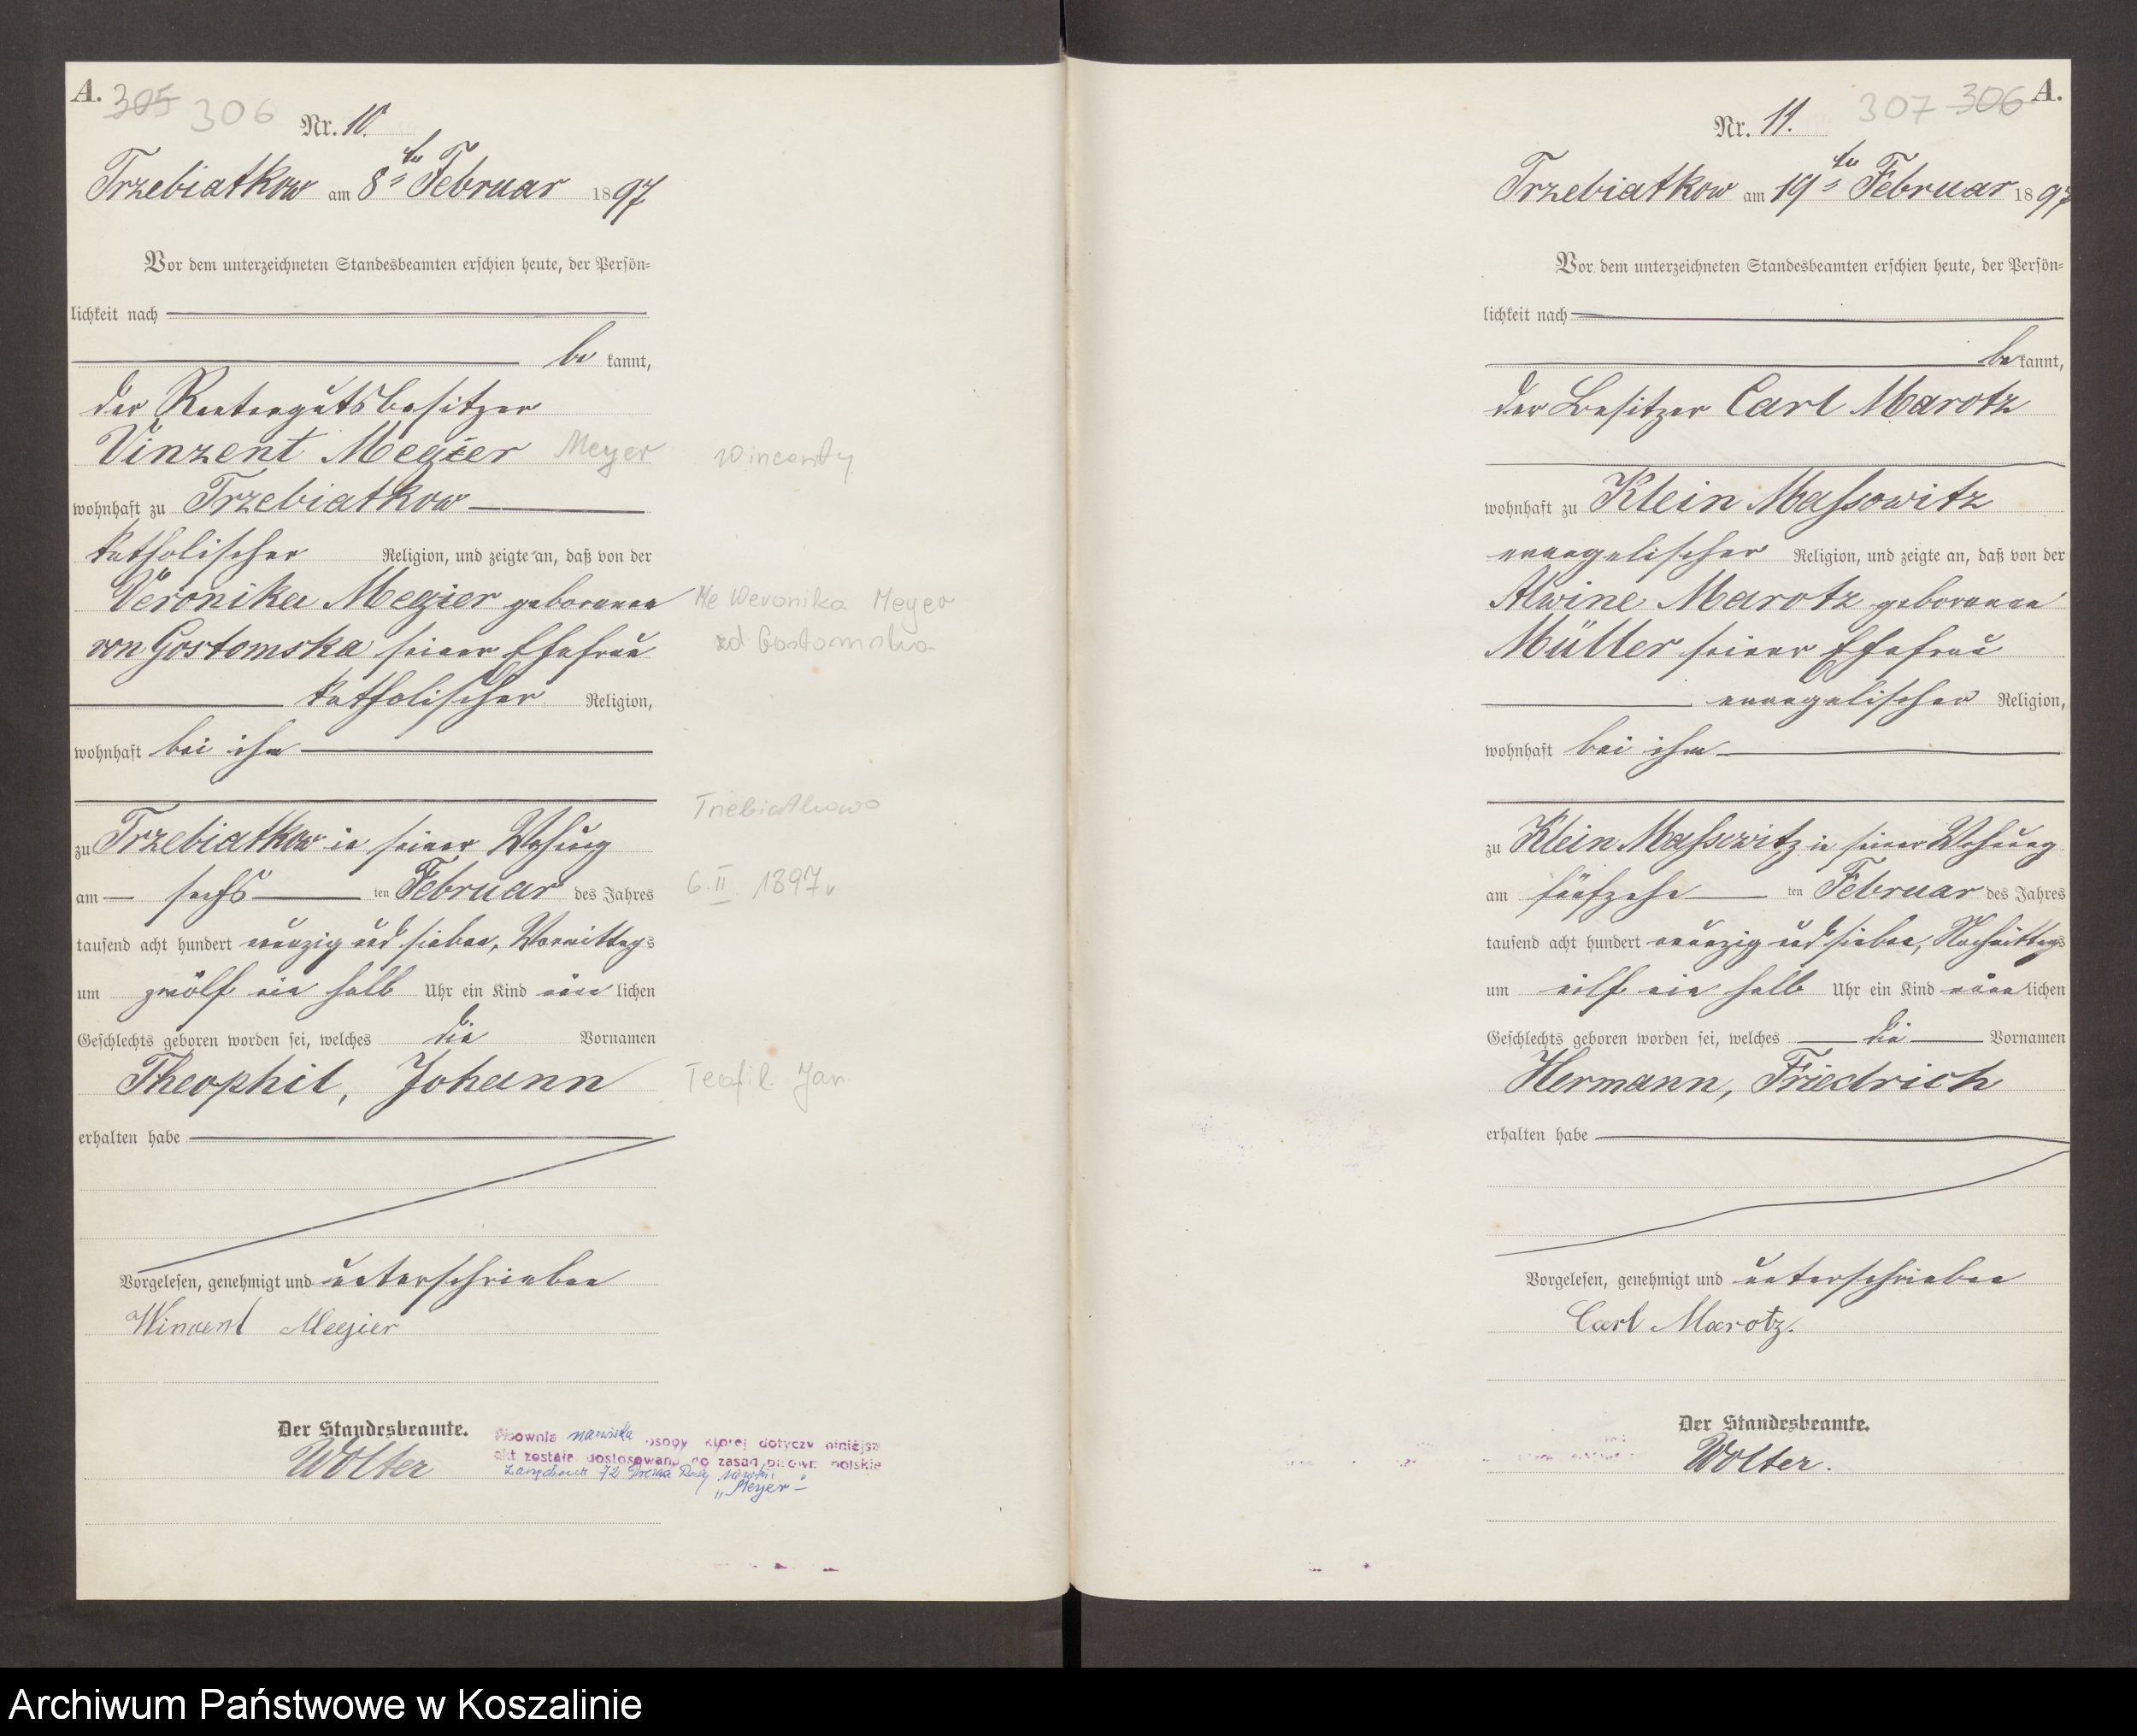 A. 305 306
Nr. 10.
Trzebiatkow am 8ten Februar 1897
Vor dem unterzeichneten Standesbeamten erschien heute, der Persön-
lichkeit nach
be kannt,
der Rentengutsbesitzer
Vinzent Megier Meyer Wincenty
wohnhaft zu Trzebiatkow
katholischer Religion, und zeigte an, daß von der
Veronika Megier geborenen Weronika Meyer
von Gostomska seiner Ehefrau zd Gostomska
katholischer Religion,
wohnhaft bei ihm
Trzebiatkowo
zu Trzebiatkow in seiner Wohnung
am sechs ten Februar des Jahres 6. II. 1897
tausend acht hundert neunzig und sieben, Vormittags
um zwölf ein halb Uhr ein Kind männlichen
Geschlechts geboren worden sei, welches die Vornamen
Theophil, Johann Teofil Jan
erhalten habe
Vorgelesen, genehmigt und unterschrieben
Wincent Megier
Der Standesbeamte.
Wolter
Pisownia nazwiska osoby której dotyczy niniejszy
akt została dostosowana do zasad pisowni polskiej
"Meyer"
307 306 A.
Nr. 11.
Trzebiatkow am 19ten Februar 1897
Vor dem unterzeichneten Standesbeamten erschien heute, der Persön-
lichkeit nach
be kannt,
der Besitzer Carl Marotz
wohnhaft zu Klein Massowitz
evangelischer Religion, und zeigte an, daß von der
Alwine Marotz geborenen
Müller seiner Ehefrau
evangelischer Religion,
wohnhaft bei ihm
zu Klein Massowitz in seiner Wohnung
am fünfzehn ten Februar des Jahres
tausend acht hundert neunzig und sieben, Nachmittags
um eilf ein halb Uhr ein Kind männlichen
Geschlechts geboren worden sei, welches die Vornamen
Hermann, Friedrich
erhalten habe
Vorgelesen, genehmigt und unterschrieben
Carl Marotz.
Der Standesbeamte.
Wolter.
Archiwum Państwowe w Koszalinie